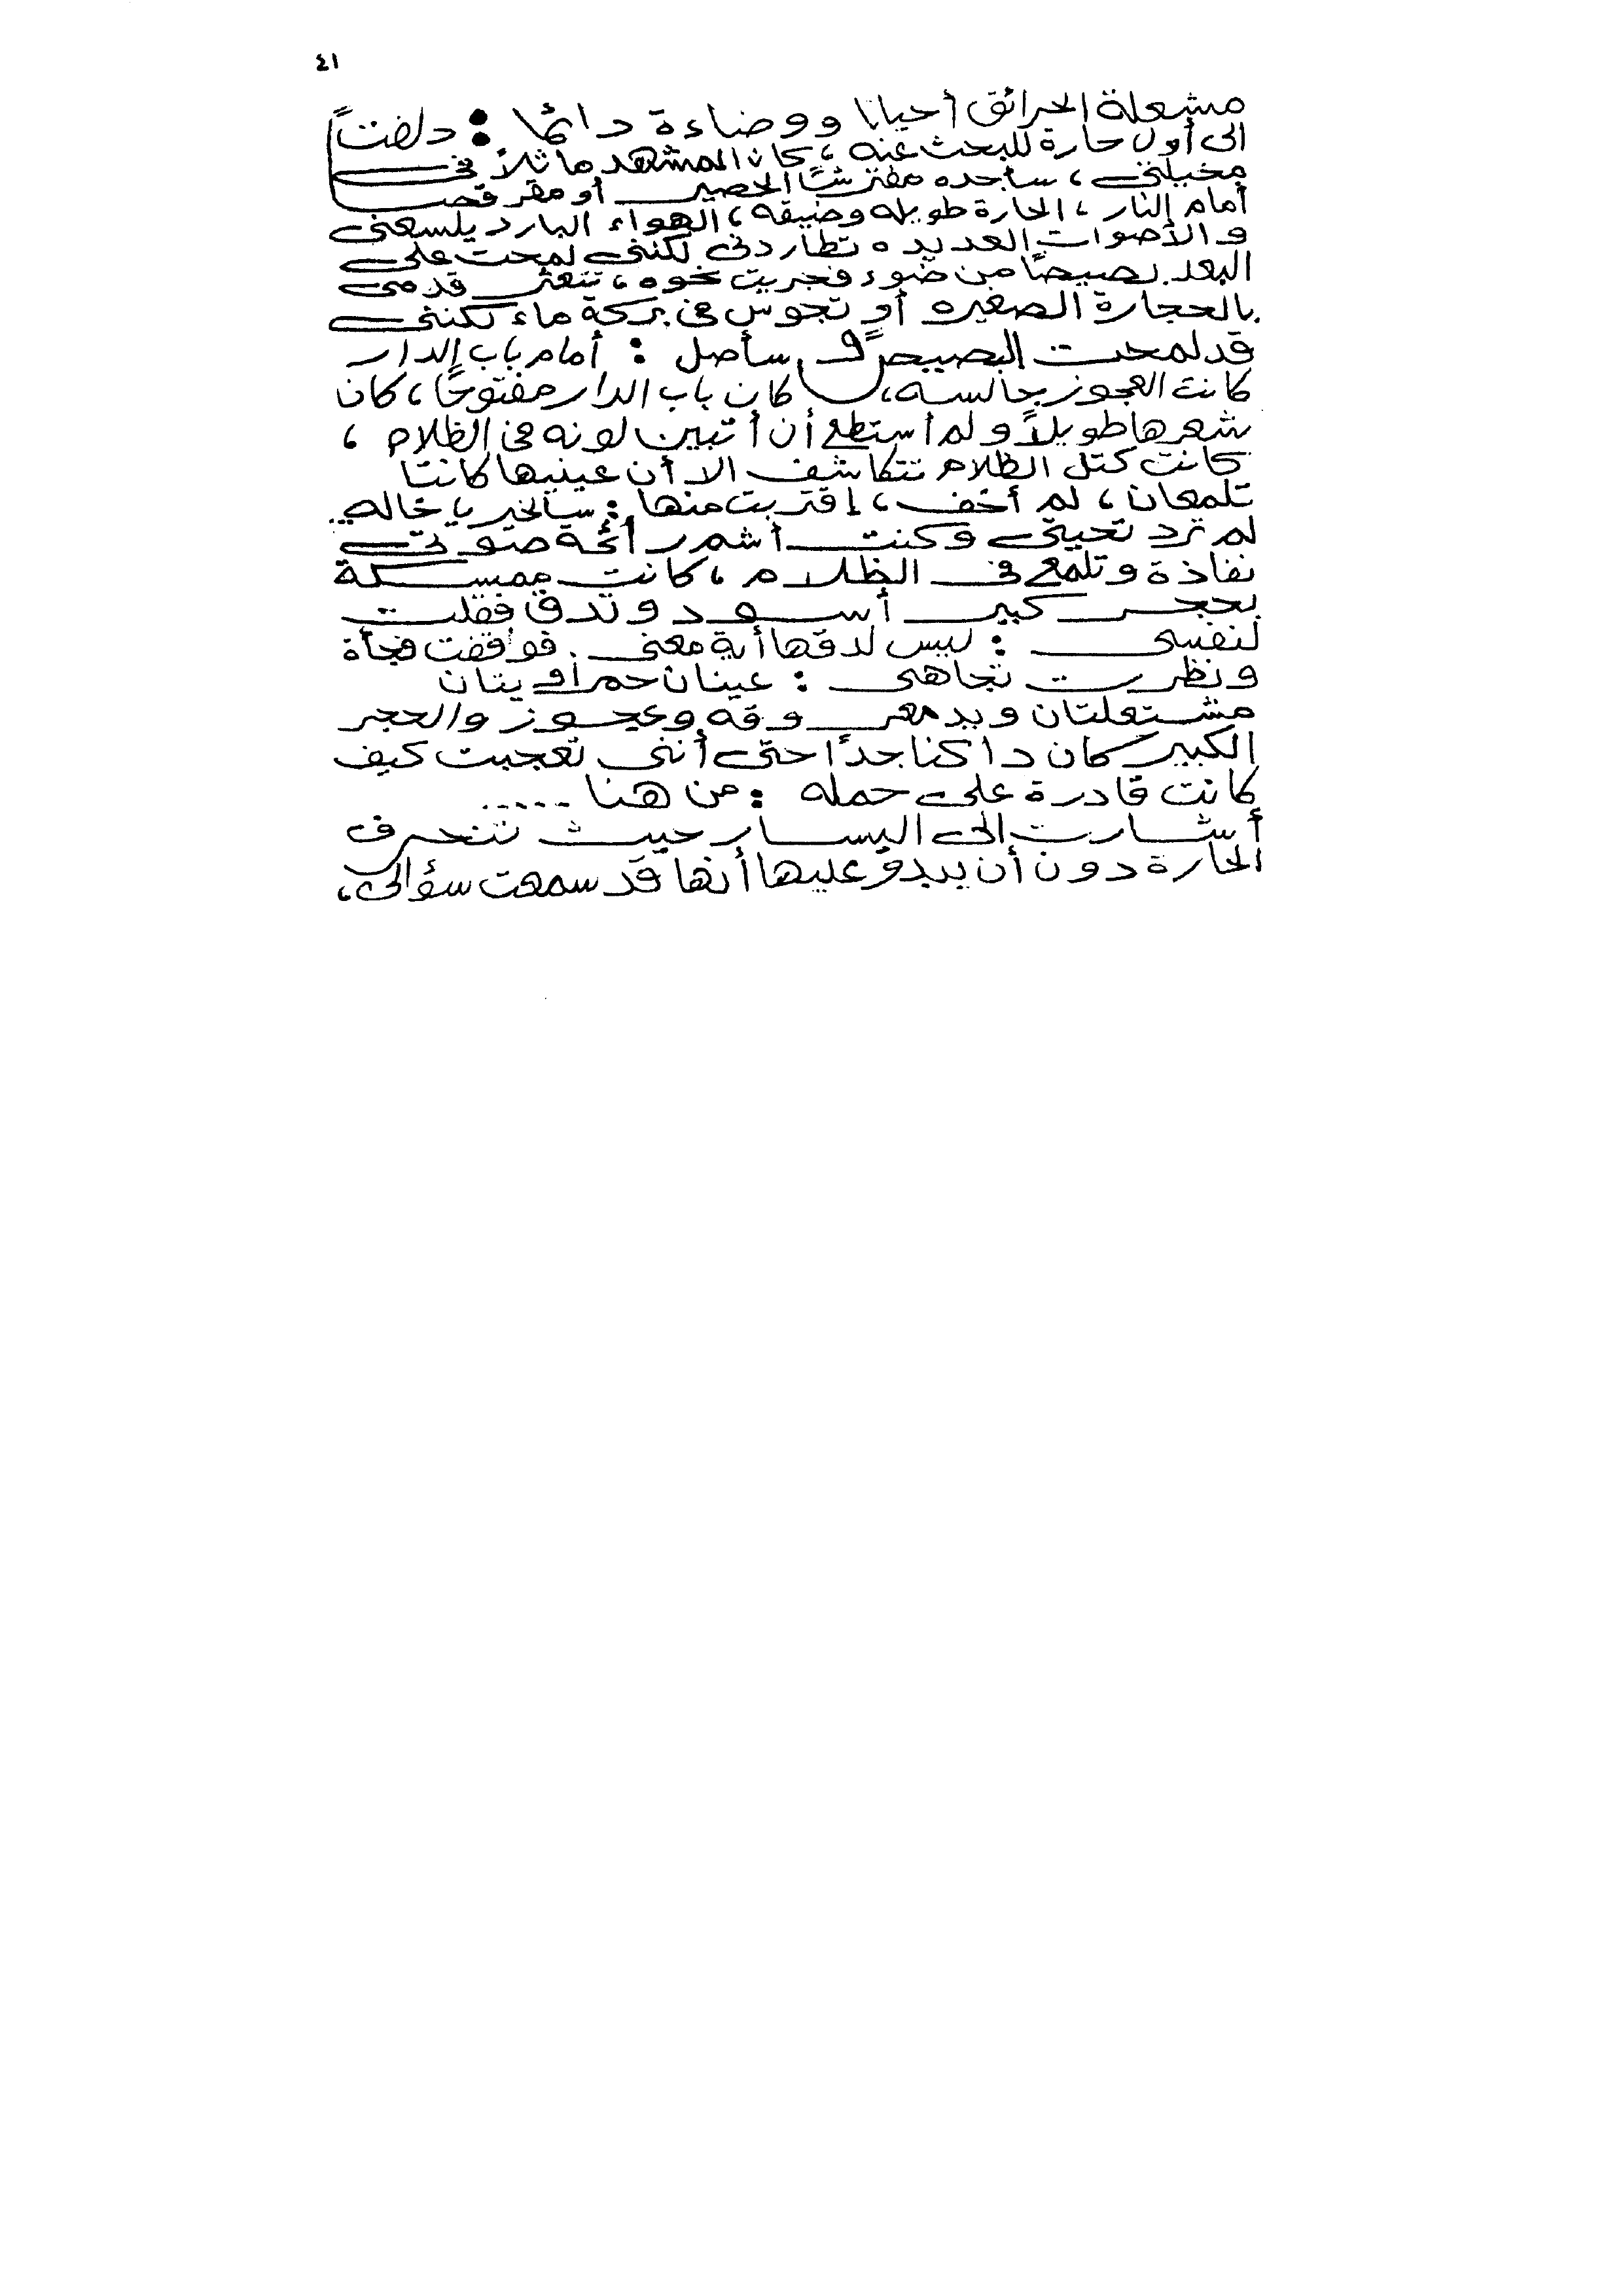 ٤١
مشعلة الحرائق أحيانا ووضاءة دائمًا : دلفت
الى أول حارة للبحث عنه ، كان المشهد ماثلاً فى
مخيلتى ، سأجده مفترشًا الحصير أو مقرفصا
أمام النار ، الحارة طويله وضيقه ، الهواء البارد يلسعنى
و الأصوات العديده تطاردنى لكننى لمحت على
البعد بصيصًا من ضوء فجريت نحوه ، تتعثر قدمى
بالحجارة الصغيره أو تجوس فى بركة ماء لكننى
قد لمحت البصيص و سأصل : أمام باب الدار
كانت العجوز جالسه ، كان باب الدار مفتوحًا ، كان
شعرها طويلاً و لم أستطع أن أتبين لونه فى الظلام ،
كانت كتل الظلام تتكاشف الا أن عينيها كانتا
تلمعان ، لم أخف ، إقتربت منها : سالخير يا خاله ..
لم ترد تحيتى و كنت أشم رائحة صوتى
نفاذة و تلمع فى الظلام ، كانت ممسكة
بحجر كبير أسود و تدق فقلت
لنفسى : ليس لدقها أية معنى . فوقفت فجأة
و نظرت تجاهى : عينان حمراويتان
مشتعلتان ويد معروقه وعجوز والحجر
الكبير كان داكنا جدًا حتى أننى تعجبت كيف
كانت قادرة على حمله : من هنا .....
أشارت الى اليسار حيث تنحرف
الحارة دون أن يبدو عليها أنها قد سمعت سؤالى ،